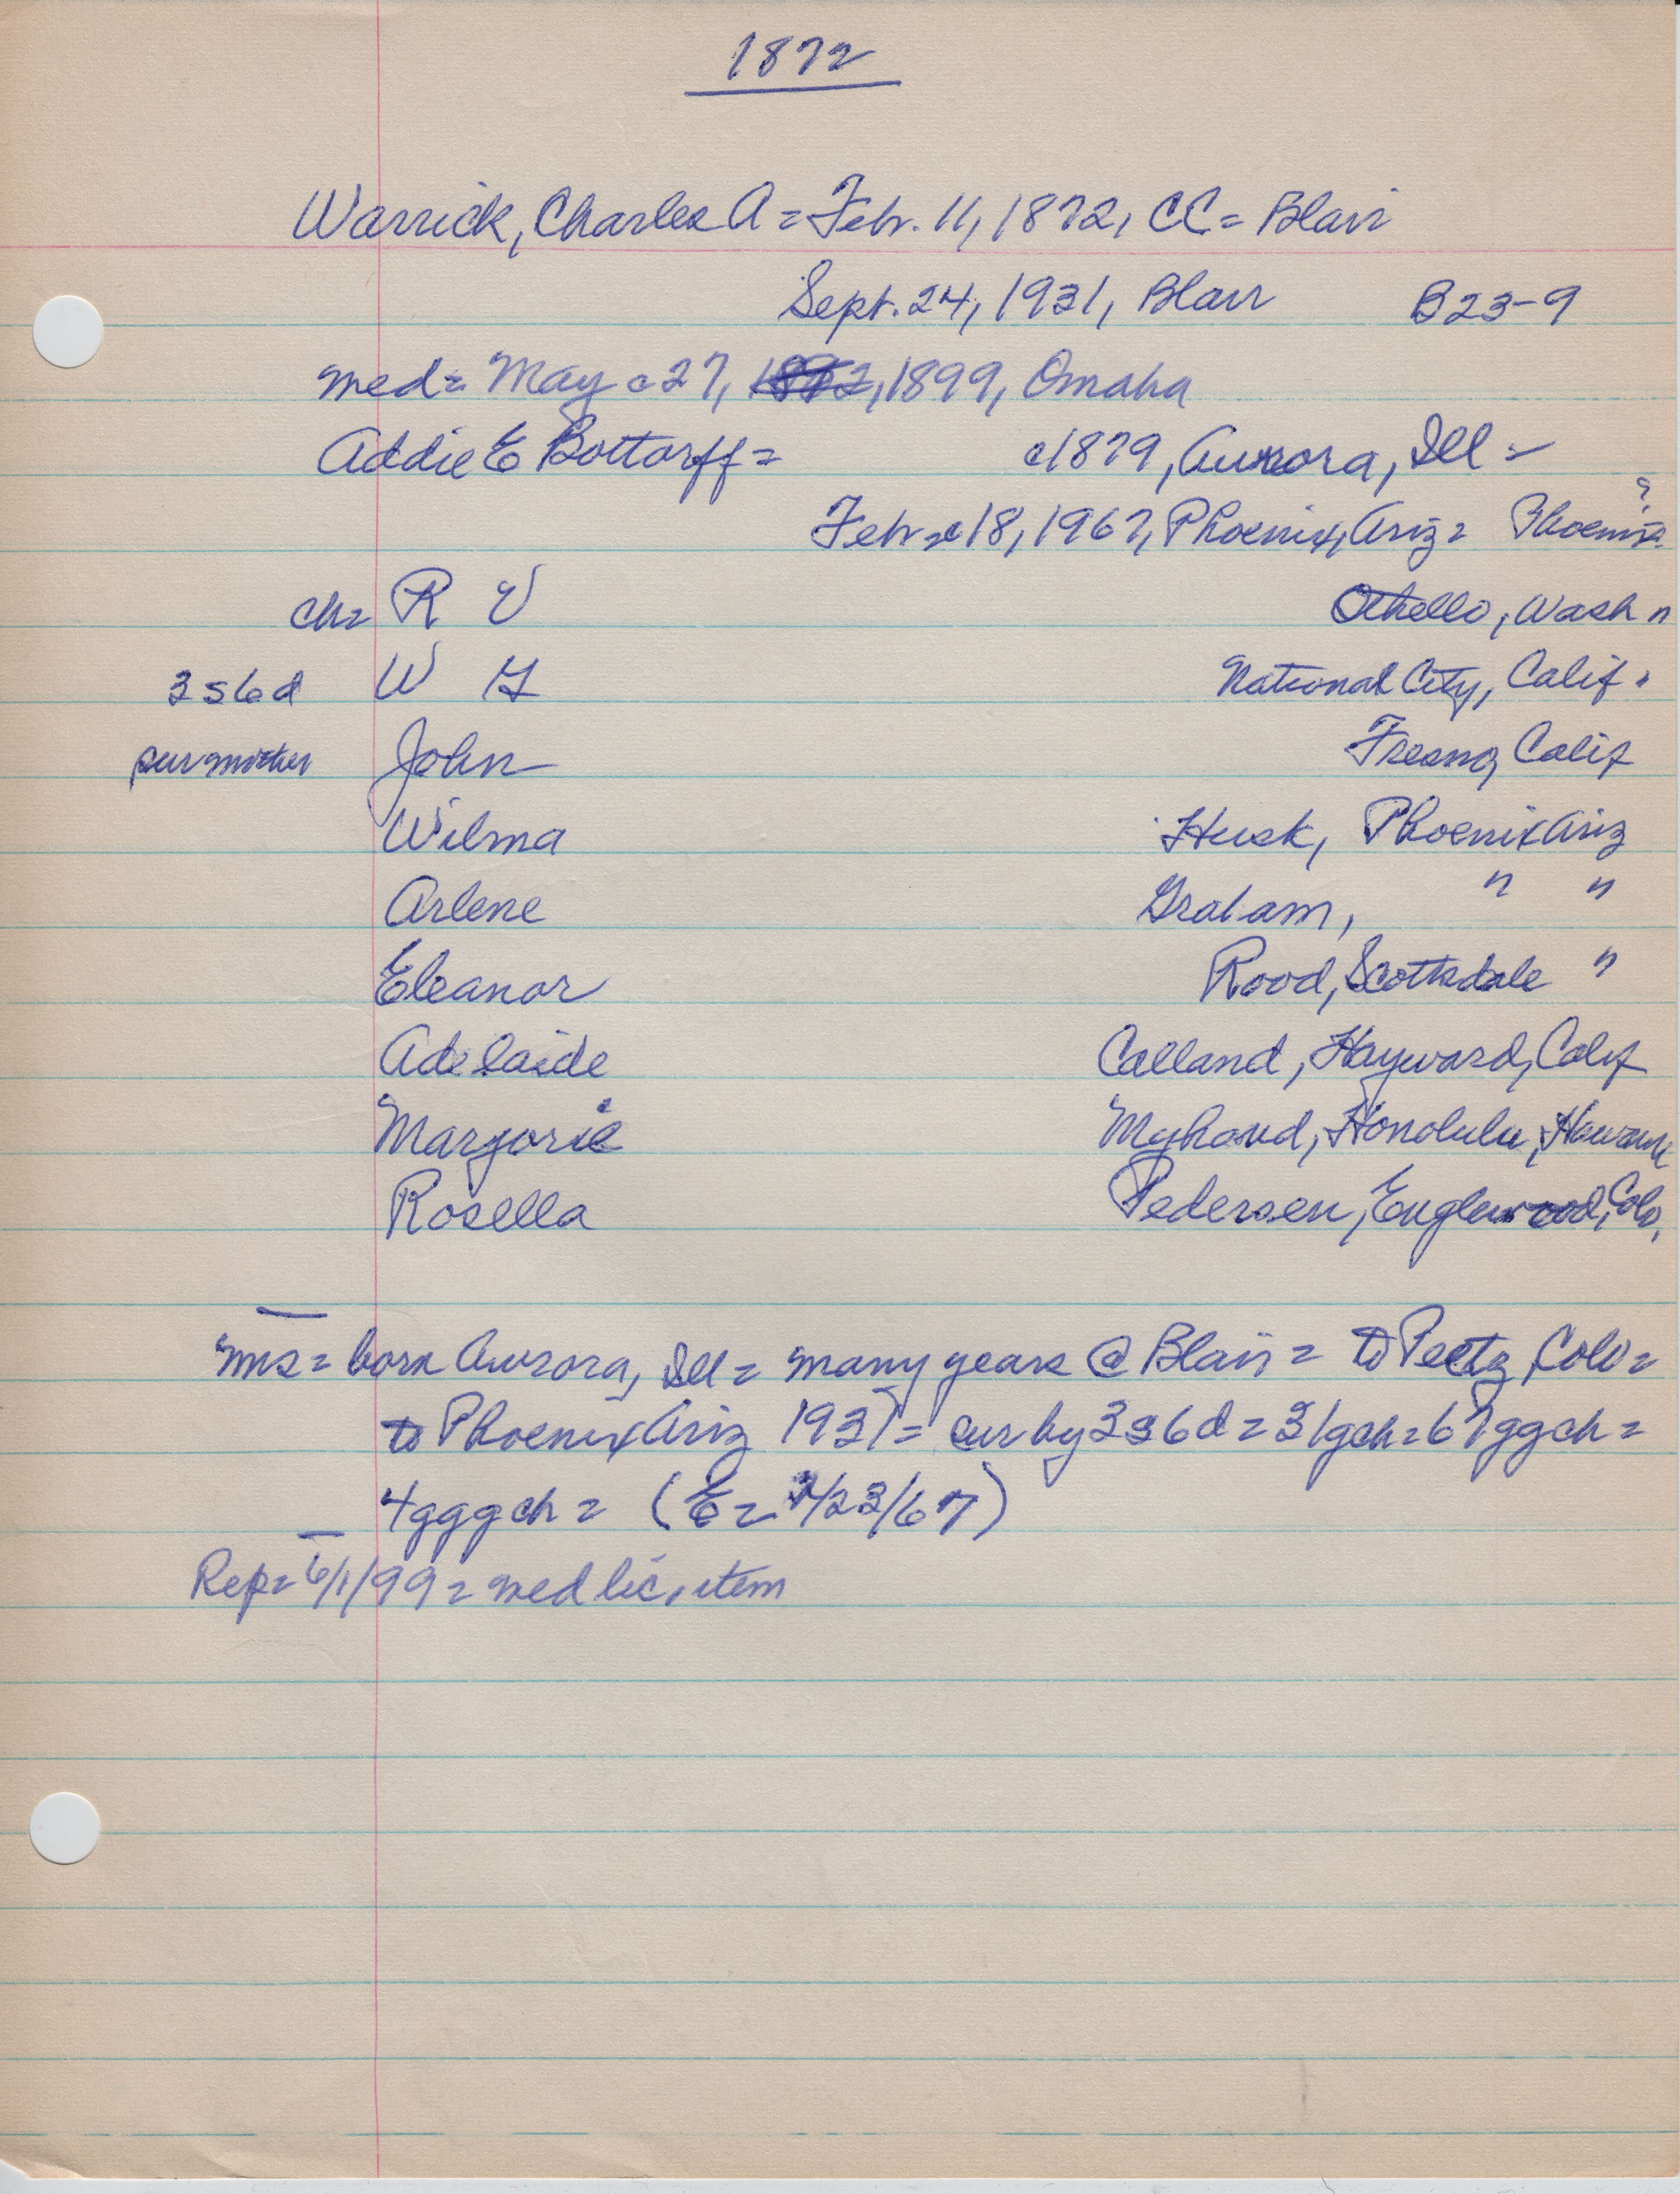 1872
Warrick, Charles A = Feb. 11, 1872, CC = Blair
Sept. 24, 1931, Blair B23-9
med = May c 27, 1899, Omaha
Addie E Bottorff = c1879, Aurora, Ill =
Feb = c18, 1967, Phoenix, Ariz = Phoenix ?
ch = R V Othello, Wash "
3 s 6 d W G National City, Calif.
sur mother John Fresno, Calif
Wilma Husk, Phoenix Ariz
Arlene Graham, " "
Eleanor Rood, Scottsdale "
Adelaide Calland, Hayward, Calif
Marjorie Myhand, Honolulu, Hawaii
Rosella Pedersen, Englewood, Colo,
mrs = born Aurora, Ill = many years @ Blair = to Peetz, Colo =
to Phoenix Ariz 1937 = sur by 3 s 6 d = 31 gch = 67 ggch =
4 gggch = (E = 2/23/67)
Rep = 6/1/99 = med lic, item